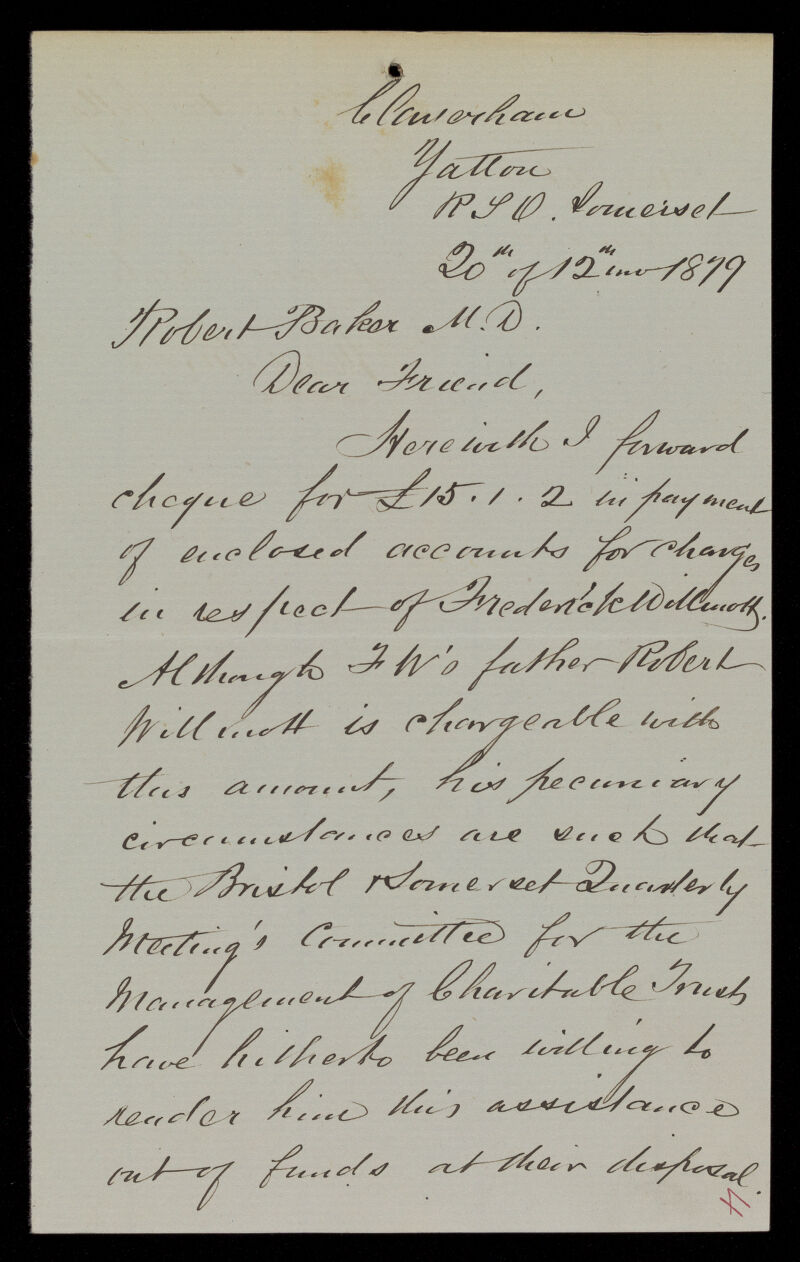 Claverham
Yatton
R S O. Somerset
20th of 12th mo 1879
Robert Baker M.D.
Dear Friend,
Herewith I forward
cheque for £15.1.2 in payment
of enclosed accounts for charges
in respect of Frederick Willmott.
Although F W's father Robert
Willmott is chargeable with
this amount, his pecuniary
circumstances are such that
the Bristol & Somerset Quarterly
Meeting's Committee for the
Management of Charitable Trusts
have hitherto been willing to
render him this assistance
out of funds at their disposal.
4